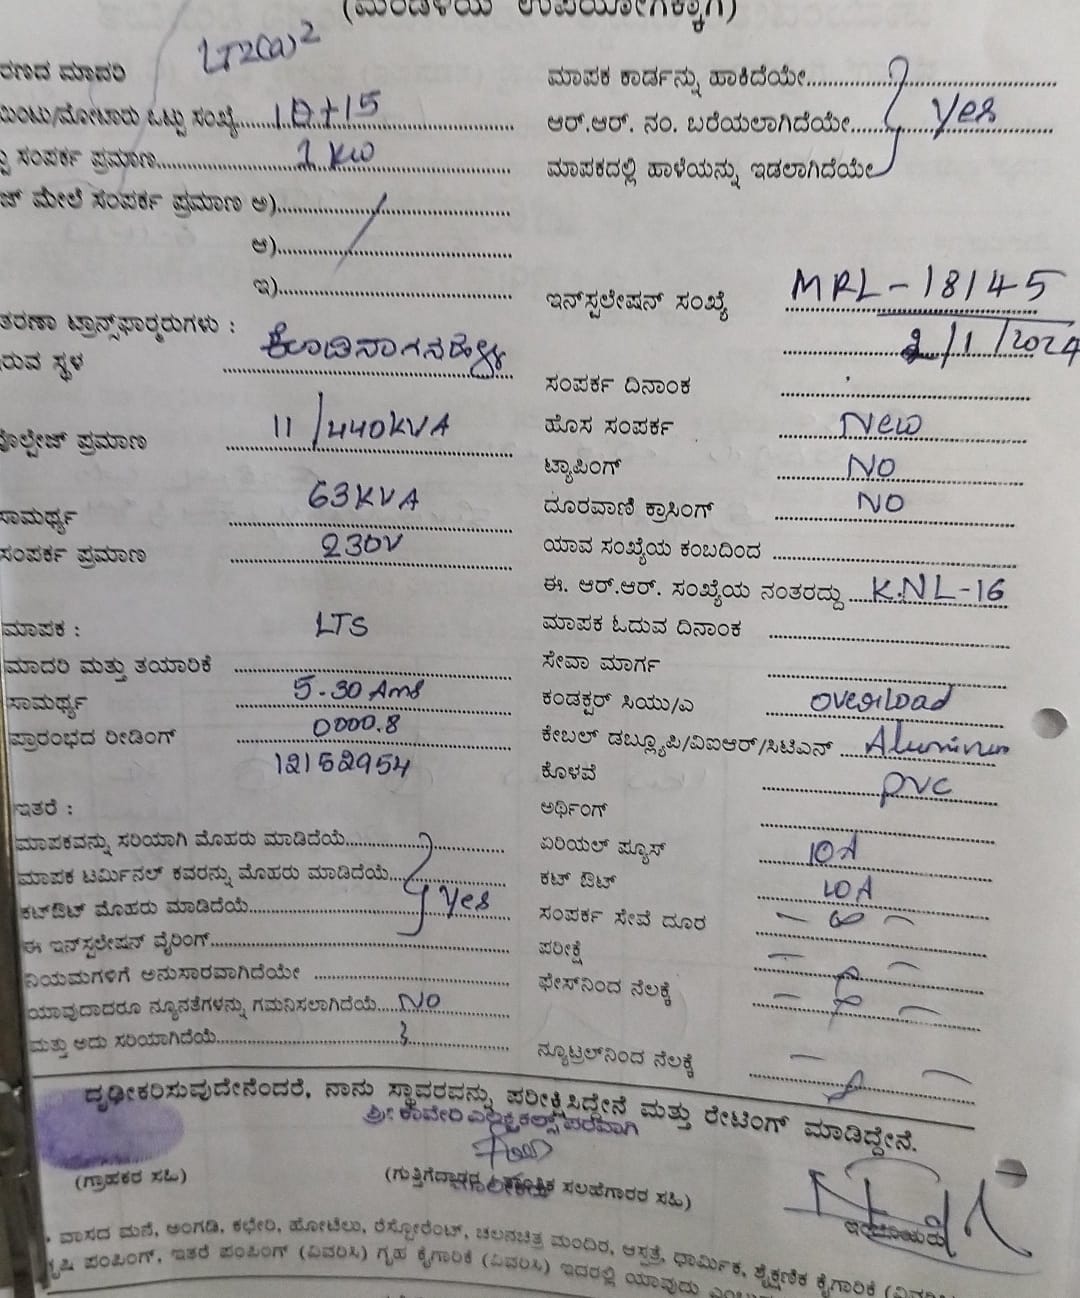 (ಮಂಡಳಿಯ ಉಪಯೋಗಕ್ಕಾಗಿ)
LT2(a)2
ರಣದ ಮಾದರಿ
ಮಾಪಕ ಕಾರ್ಡನ್ನು ಹಾಕಿದೆಯೇ
ಒಟ್ಟು ಸಂಖ್ಯೆ 10+15
ಆರ್.ಆರ್. ನಂ. ಬರೆಯಲಾಗಿದೆಯೇ Yes
ಸಂಪರ್ಕ ಪ್ರಮಾಣ 1 KW
ಮಾಪಕದಲ್ಲಿ ಹಾಳೆಯನ್ನು ಇಡಲಾಗಿದೆಯೇ
ಜ್ ಮೇಲೆ ಸಂಪರ್ಕ ಪ್ರಮಾಣ ಅ)
ಆ)
ಇ)
ಇನ್‌ಸ್ಟಲೇಷನ್ ಸಂಖ್ಯೆ MRL-18145
2/1/2024
ತರಣಾ ಟ್ರಾನ್ಸ್‌ಫಾರ್ಮರುಗಳು :
ರುವ ಸ್ಥಳ
ಸಂಪರ್ಕ ದಿನಾಂಕ
ಹೊಸ ಸಂಪರ್ಕ New
ವೋಲ್ಟೇಜ್ ಪ್ರಮಾಣ 11/440KVA
ಟ್ಯಾಪಿಂಗ್ NO
ಸಾಮರ್ಥ್ಯ 63KVA
ದೂರವಾಣಿ ಕ್ರಾಸಿಂಗ್ NO
ಸಂಪರ್ಕ ಪ್ರಮಾಣ 230V
ಯಾವ ಸಂಖ್ಯೆಯ ಕಂಬದಿಂದ
ಈ. ಆರ್.ಆರ್. ಸಂಖ್ಯೆಯ ನಂತರದ್ದು K.NL-16
ಮಾಪಕ : LTS
ಮಾಪಕ ಓದುವ ದಿನಾಂಕ
ಮಾದರಿ ಮತ್ತು ತಯಾರಿಕೆ
ಸೇವಾ ಮಾರ್ಗ
ಸಾಮರ್ಥ್ಯ 5-30 Ams
ಕಂಡಕ್ಟರ್ ಸಿಯು/ಎ overload
ಪ್ರಾರಂಭದ ರೀಡಿಂಗ್ 0000.8
ಕೇಬಲ್ ಡಬ್ಲ್ಯೂಪಿ/ವಿಐಆರ್/ಸಿಟಿಎನ್ Aluminum
12152954
ಕೊಳವೆ PVC
ಇತರೆ :
ಅರ್ಥಿಂಗ್
ಮಾಪಕವನ್ನು ಸರಿಯಾಗಿ ಮೊಹರು ಮಾಡಿದೆಯೆ
ಏರಿಯಲ್ ಫ್ಯೂಸ್ 10A
ಮಾಪಕ ಟರ್ಮಿನಲ್ ಕವರನ್ನು ಮೊಹರು ಮಾಡಿದೆಯೆ
ಕಟ್ ಔಟ್ 10A
ಕಟ್‌ಔಟ್ ಮೊಹರು ಮಾಡಿದೆಯೆ Yes
ಸಂಪರ್ಕ ಸೇವೆ ದೂರ
ಈ ಇನ್‌ಸ್ಟಲೇಷನ್ ವೈರಿಂಗ್
ಪರೀಕ್ಷೆ
ನಿಯಮಗಳಿಗೆ ಅನುಸಾರವಾಗಿದೆಯೇ
ಫೇಸ್‌ನಿಂದ ನೆಲಕ್ಕೆ
ಯಾವುದಾದರೂ ನ್ಯೂನತೆಗಳನ್ನು ಗಮನಿಸಲಾಗಿದೆಯೆ NO
ಮತ್ತು ಅದು ಸರಿಯಾಗಿದೆಯೆ
ನ್ಯೂಟ್ರಲ್‌ನಿಂದ ನೆಲಕ್ಕೆ
ದೃಢೀಕರಿಸುವುದೇನೆಂದರೆ, ನಾನು ಸ್ಥಾವರವನ್ನು ಪರೀಕ್ಷಿಸಿದ್ದೇನೆ ಮತ್ತು ರೇಟಿಂಗ್ ಮಾಡಿದ್ದೇನೆ.
ಶ್ರೀ ಕಾವೇರಿ ಎಲೆಕ್ಟ್ರಿಕಲ್ಸ್ ಪರವಾಗಿ
(ಗ್ರಾಹಕರ ಸಹಿ)
(ಗುತ್ತಿಗೆದಾರರ / ಸಲಹೆಗಾರರ ಸಹಿ)
ವಾಸದ ಮನೆ, ಅಂಗಡಿ, ಕಛೇರಿ, ಹೋಟೆಲು, ರೆಸ್ಟೋರೆಂಟ್, ಚಲನಚಿತ್ರ ಮಂದಿರ, ಆಸ್ಪತ್ರೆ, ಧಾರ್ಮಿಕ, ಶೈಕ್ಷಣಿಕ ಕೈಗಾರಿಕೆ
ಕೃಷಿ ಪಂಪಿಂಗ್, ಇತರೆ ಪಂಪಿಂಗ್ (ವಿವರಿಸಿ) ಗೃಹ ಕೈಗಾರಿಕೆ (ವಿವರಿಸಿ) ಇದರಲ್ಲಿ ಯಾವುದು